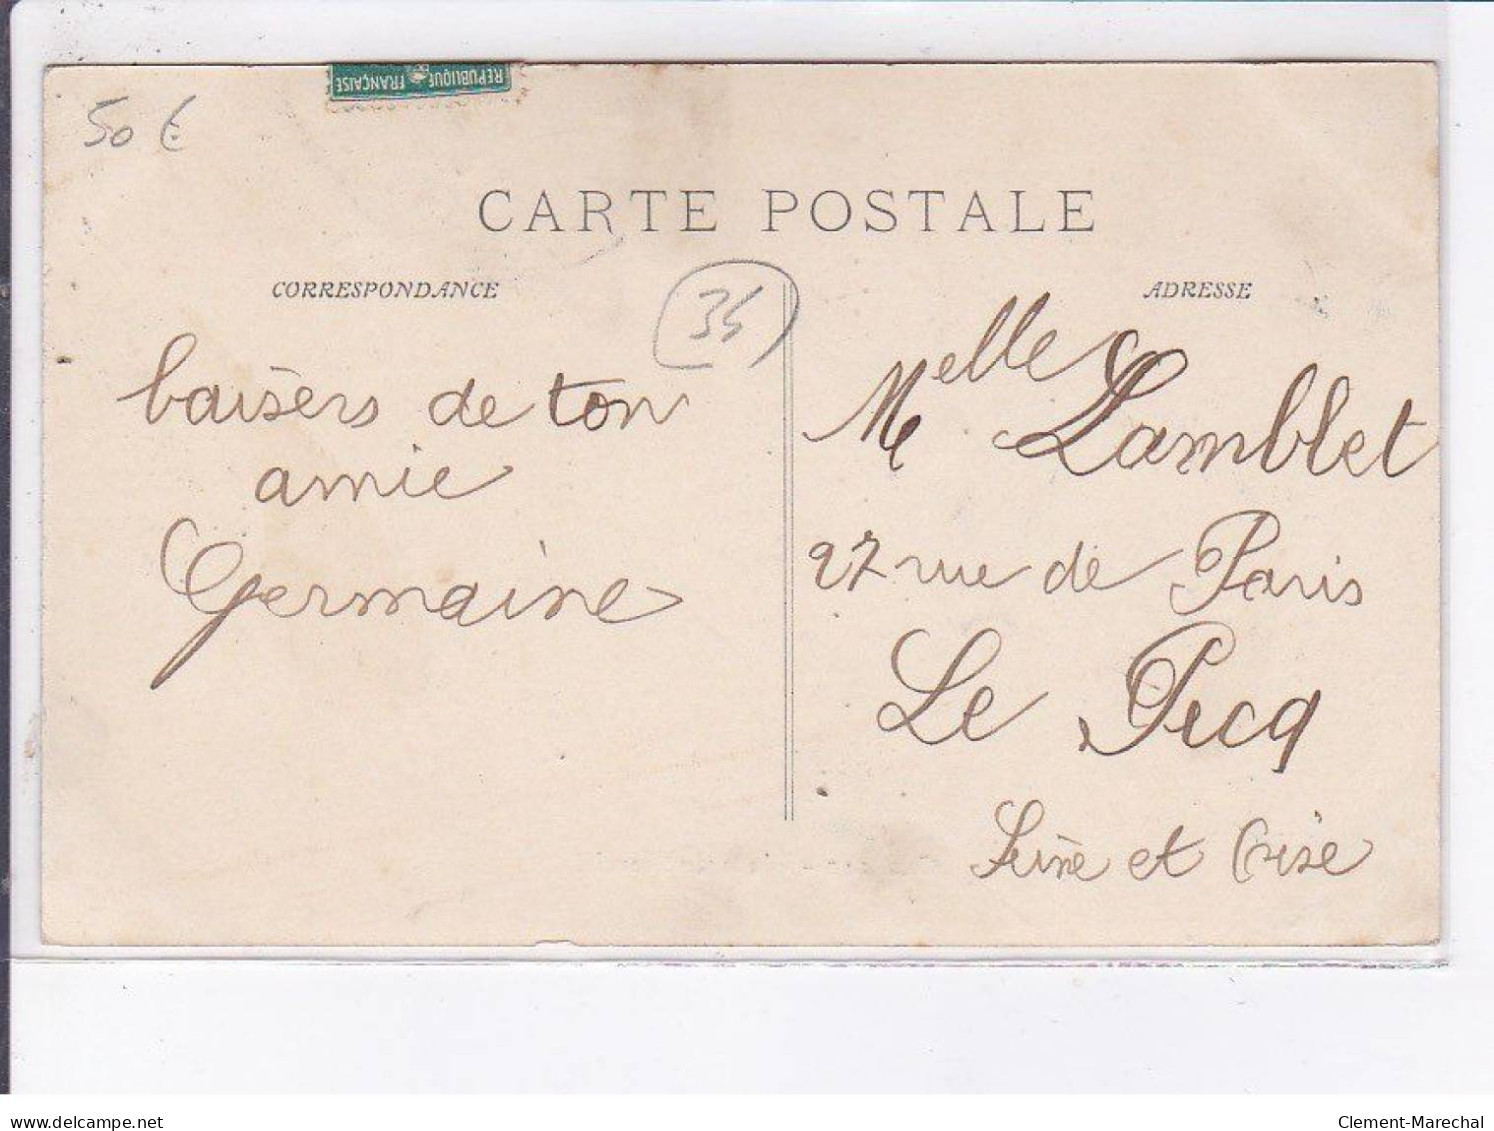 REPUBLIQUE FRANÇAISE
50 €
CARTE POSTALE
CORRESPONDANCE
35
ADRESSE
baisers de ton
amie
Germaine
Melle Lamblet
27 rue de Paris
Le Pecq
Seine et Oise
delcampe.net
Clement-Marechal